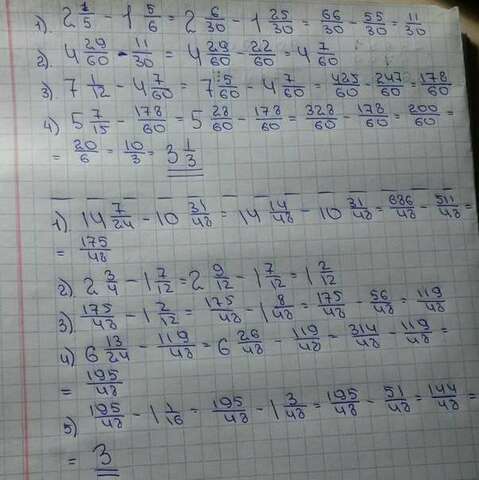 1). 2 1/5 - 1 5/6 = 2 6/30 - 1 25/30 = 66/30 - 55/30 = 11/30
2). 4 29/60 - 11/30 = 4 29/60 - 22/60 = 4 7/60
3). 7 1/12 - 4 7/60 = 7 5/60 - 4 7/60 = 425/60 - 247/60 = 178/60
4) 5 7/15 - 178/60 = 5 28/60 - 178/60 = 328/60 - 178/60 = 200/60 =
= 20/6 = 10/3 = 3 1/3
1) 14 7/24 - 10 31/48 = 14 14/48 - 10 31/48 = 686/48 - 511/48 =
= 175/48
2) 2 3/4 - 1 7/12 = 2 9/12 - 1 7/12 = 1 2/12
3) 175/48 - 1 2/12 = 175/48 - 1 8/48 = 175/48 - 56/48 = 119/48
4) 6 13/24 - 119/48 = 6 26/48 - 119/48 = 314/48 - 119/48 =
= 195/48
5) 195/48 - 1 1/16 = 195/48 - 1 3/48 = 195/48 - 51/48 = 144/48 =
= 3